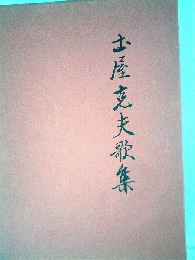 土屋克夫歌集